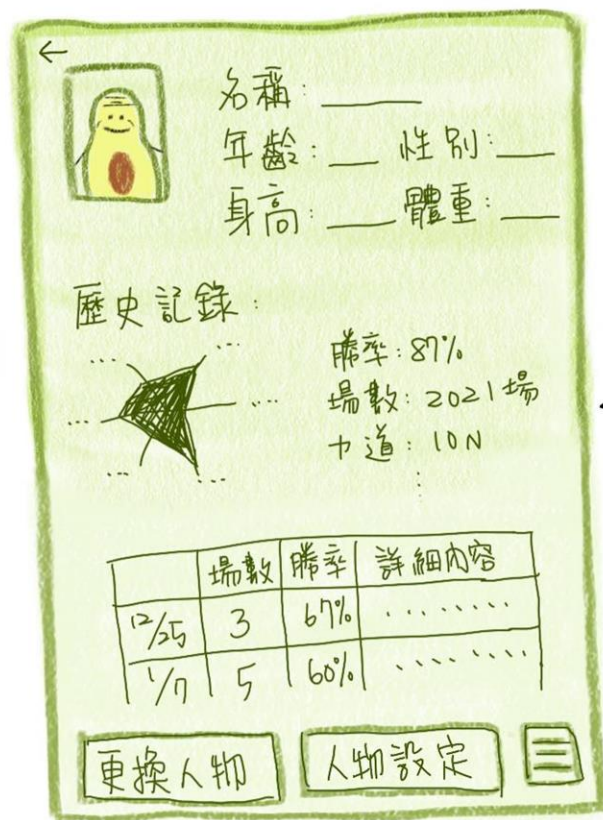 ←
名稱：______
年齡：___ 性別：___
身高：____ 體重：___
歷史記錄：
勝率：87%
場數：2021場
力道：10N
場數 勝率 詳細內容
12/25 3 67% ........
1/7 5 60% ........
更換人物 人物設定